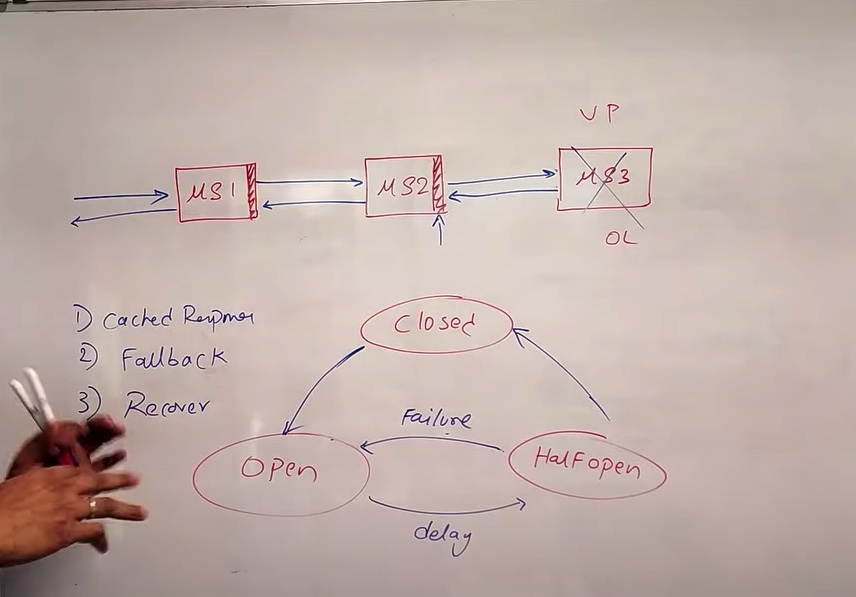 UP
MS1
MS2
MS3
OL
1) Cached
2) Fallback
3) Recover
Closed
Failure
Open
Half open
delay